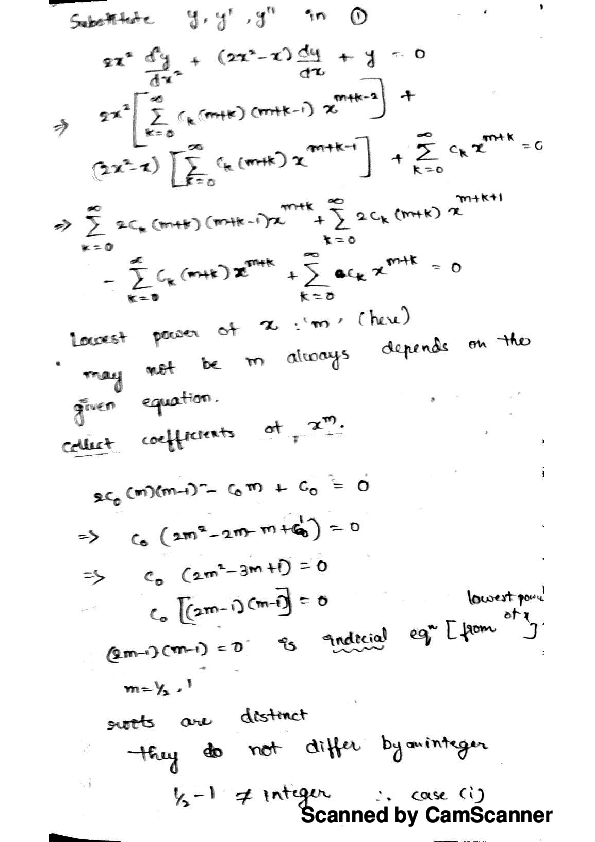 Substitute y, y', y'' in ①
2x² d²y/dx² + (2x²-x) dy/dx + y = 0
⇒ 2x² [ ∑_{k=0}^{∞} C_k (m+k) (m+k-1) x^{m+k-2} ] +
(2x²-x) [ ∑_{k=0}^{∞} C_k (m+k) x^{m+k-1} ] + ∑_{k=0}^{∞} C_k x^{m+k} = 0
⇒ ∑_{k=0}^{∞} 2C_k (m+k) (m+k-1) x^{m+k} + ∑_{k=0}^{∞} 2C_k (m+k) x^{m+k+1}
- ∑_{k=0}^{∞} C_k (m+k) x^{m+k} + ∑_{k=0}^{∞} C_k x^{m+k} = 0
Lowest power of x : 'm' (here)
may not be m always depends on the
given equation.
collect coefficients of x^m.
2C₀ (m)(m-1) - C₀ m + C₀ = 0
⇒ C₀ (2m² - 2m - m + 1) = 0
⇒ C₀ (2m² - 3m + 1) = 0
C₀ [(2m-1) (m-1)] = 0
(2m-1) (m-1) = 0 is indicial eqⁿ [from lowest power of x]
m = 1/2, 1
roots are distinct
they do not differ by an integer
1/2 - 1 ≠ integer ∴ case (i)
Scanned by CamScanner